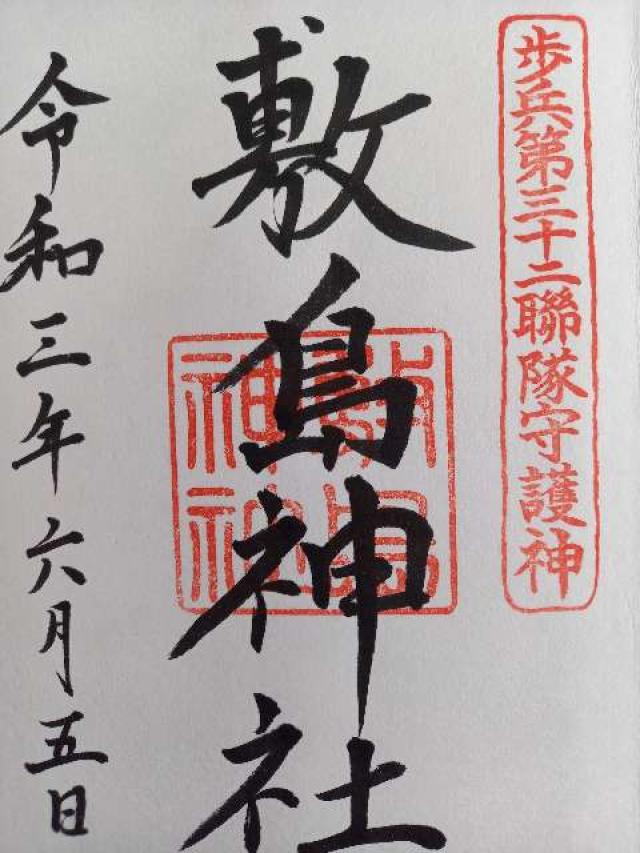 歩兵第三十二聯隊守護神
敷島神社
敷島
神社
令和三年六月五日